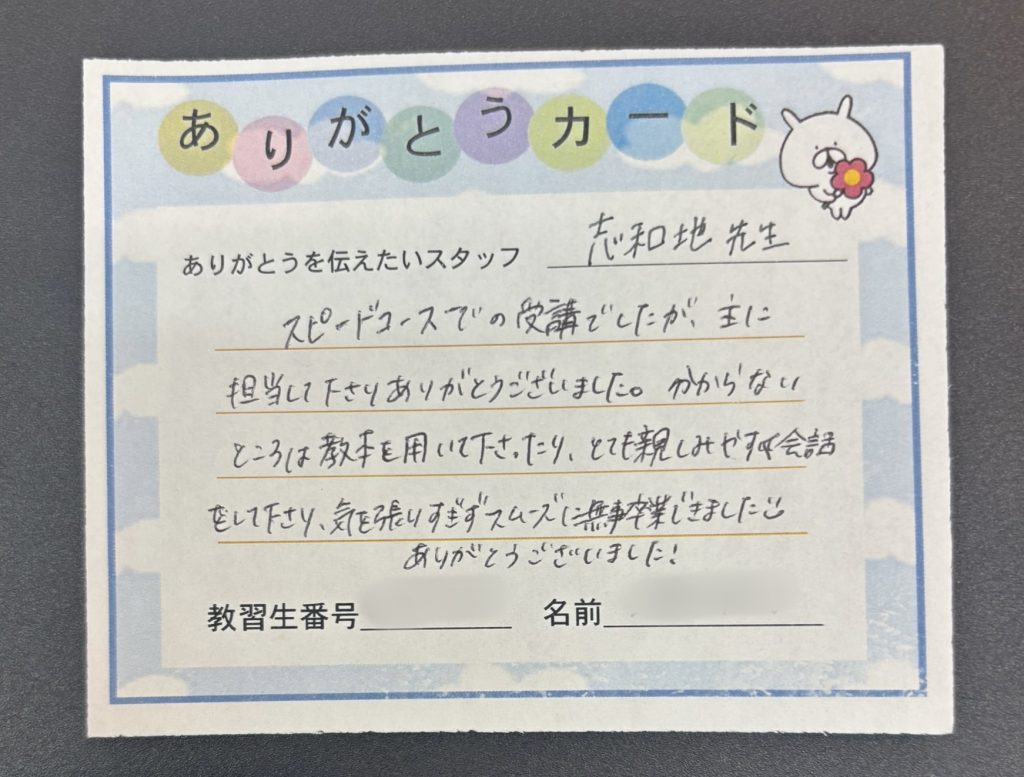 ありがとうカード
ありがとうを伝えたいスタッフ 志和地先生
スピードコースでの受講でしたが、主に
担当して下さりありがとうございました。分からない
ところは教本を用いて下さったり、とても親しみやすく会話
をして下さり、気を張りすぎずスムーズに無事卒業できました
ありがとうございました!
教習生番号 名前